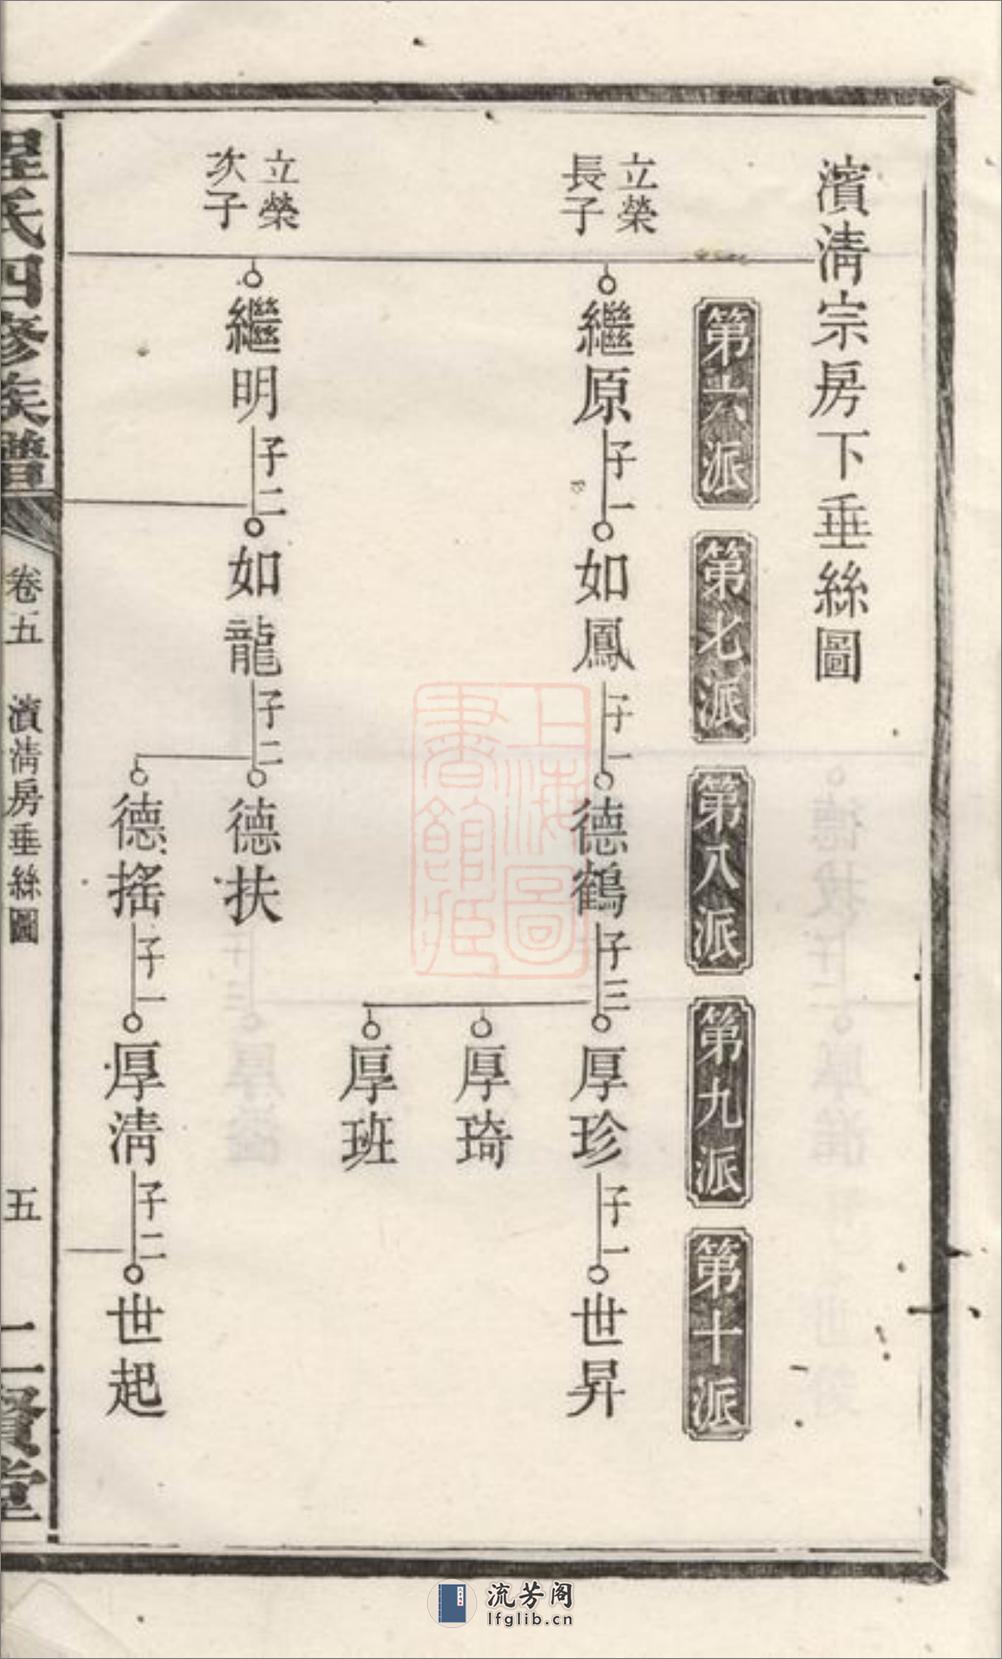 濱淸宗房下垂絲圖
第六派
第七派
第八派
第九派
第十派
立榮
長子
繼原
子一
如鳳
子一
德鶴
子三
厚珍
子一
世昇
厚琦
厚班
立榮
次子
繼明
子二
如龍
子二
德扶
德搖
子一
厚淸
子二
世起
程氏四修族譜
卷五
濱淸房垂絲圖
五
二賢堂
上海圖
書館藏
流芳阁
lfglib.cn